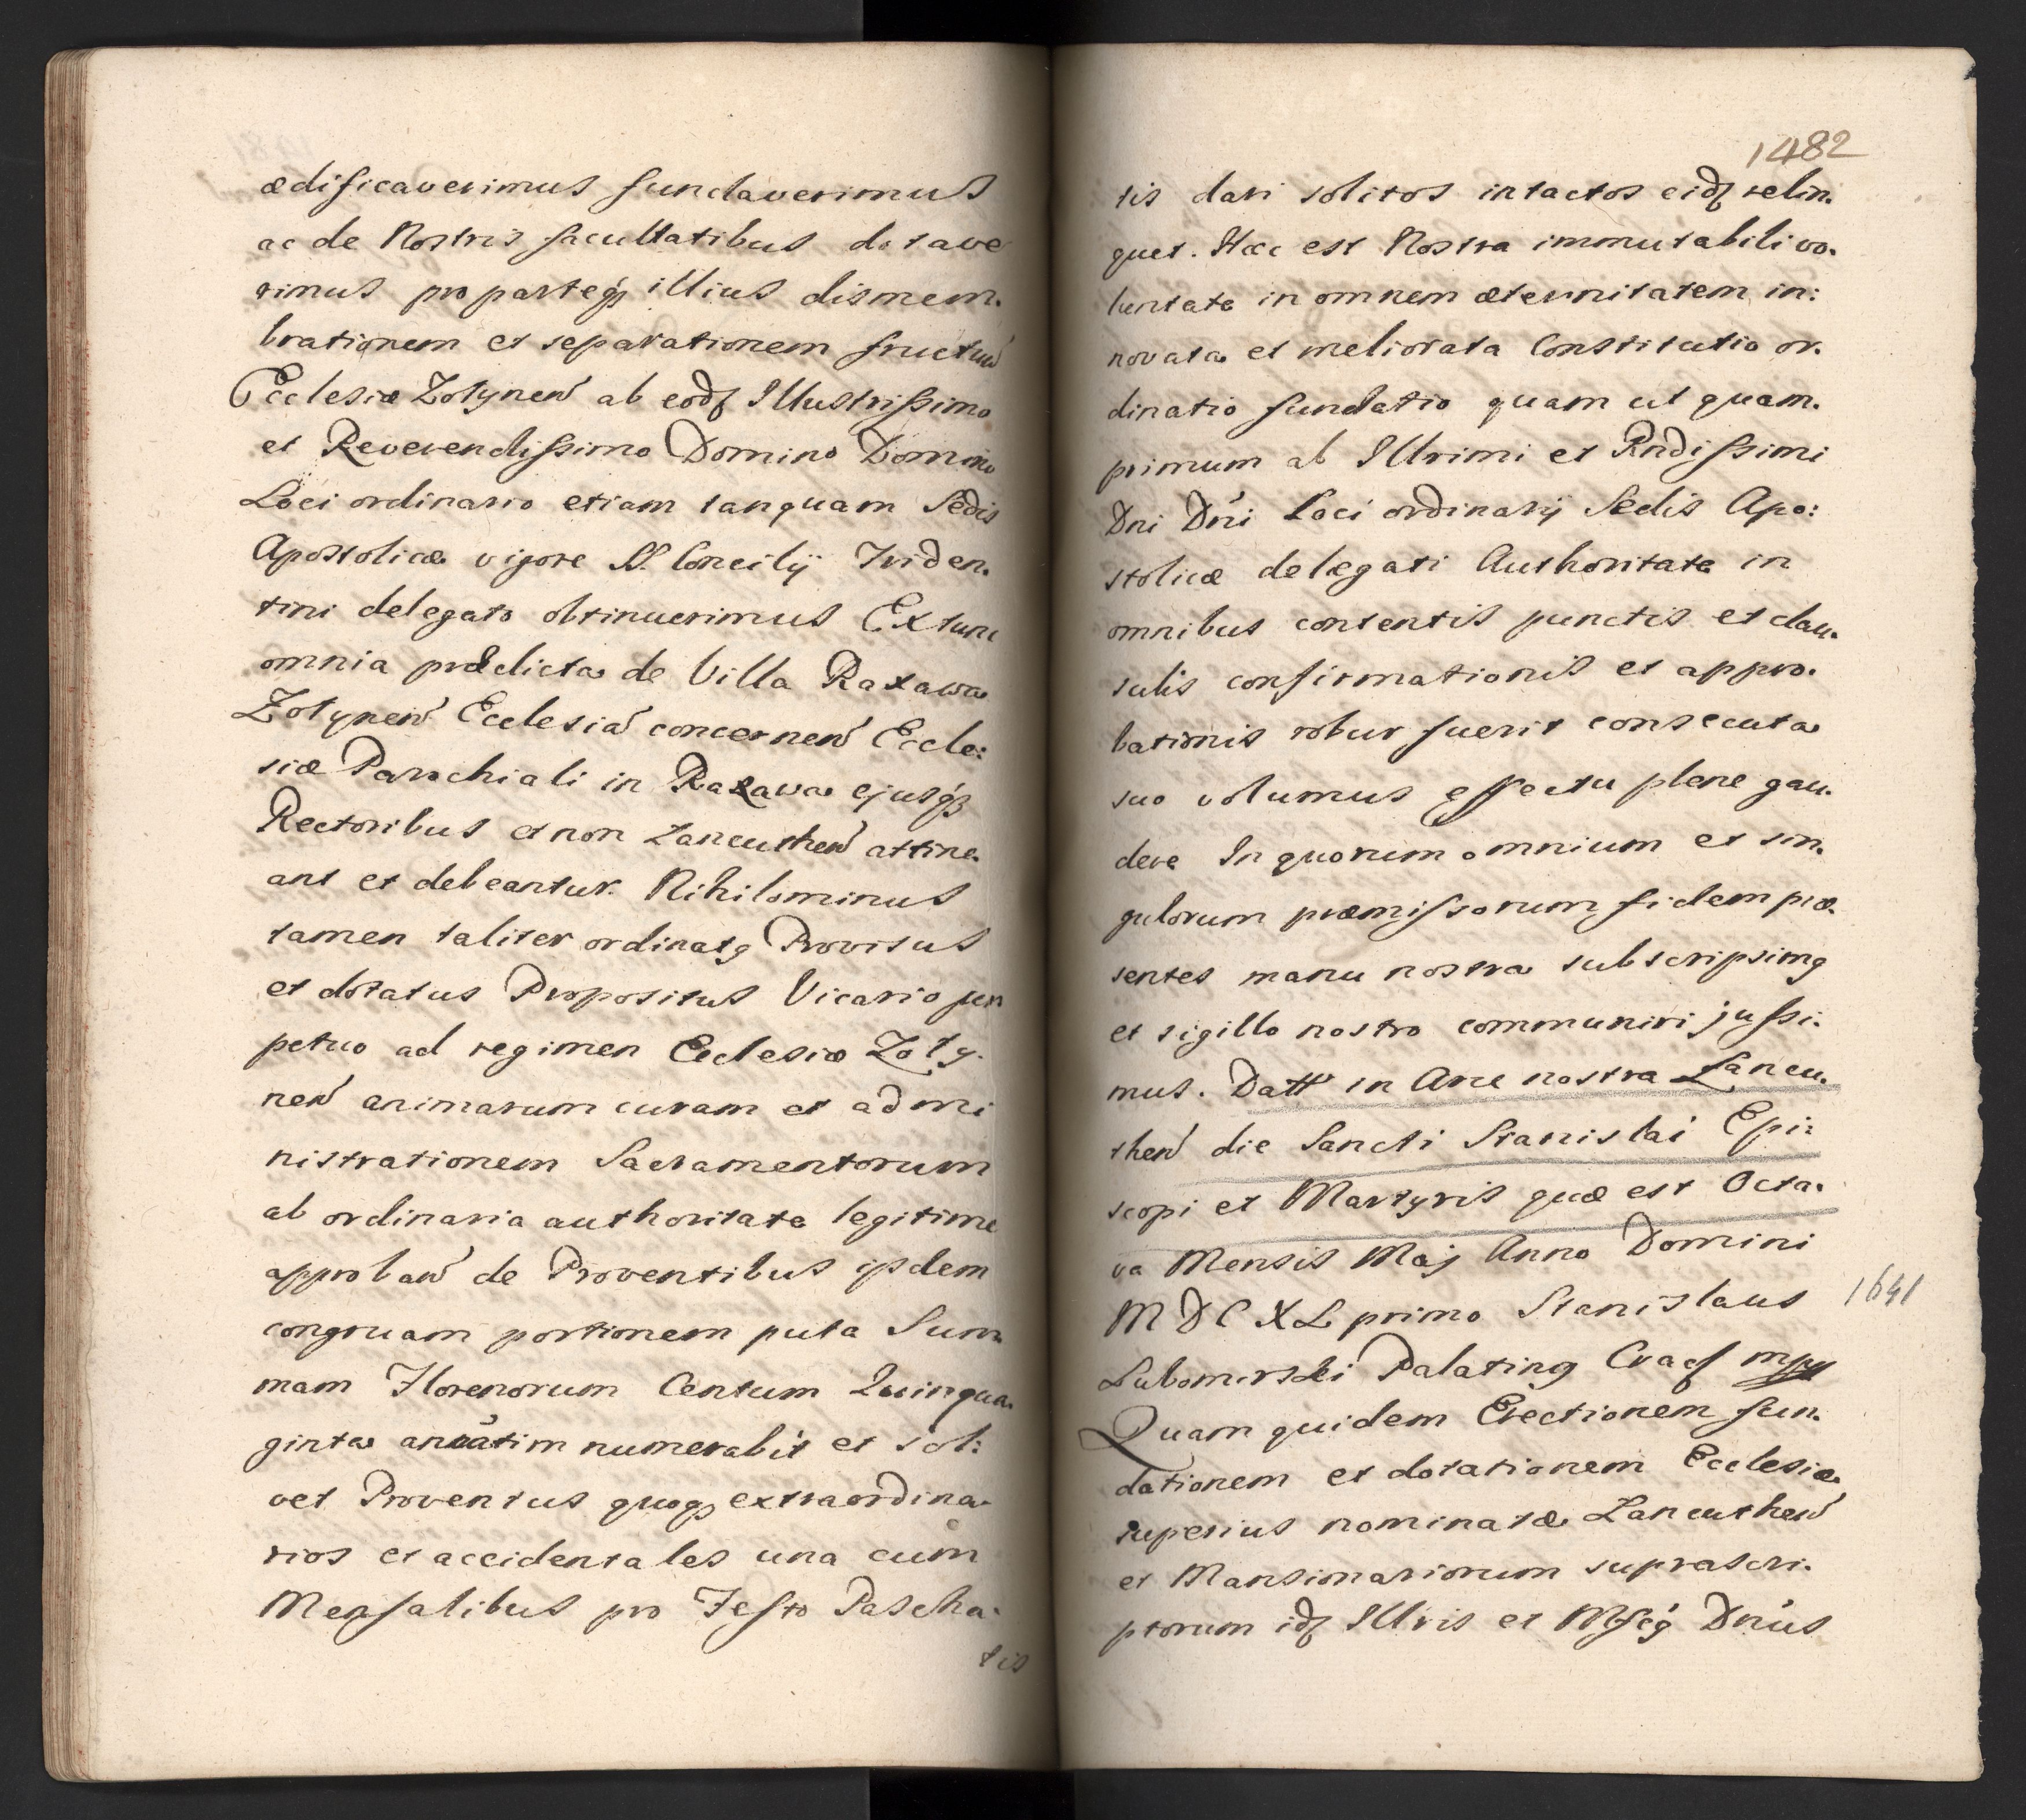 ædificaverimus fundaverimus
ac de Nostris facultatibus dotave
rimus pro parteq; illius dismem.
brationem et separationem fructuu
Ecclesiæ Zotynen ab eod Illustrissimo
et Reverendissimo Domino Domino
Loci ordinario etiam tanquam Sedis
Apostolicæ vigore S. Concilij Triden.
tini delegato obtinuerimus Extunc
omnia prædicta de Villa Raxawa
Zotynen Ecclesia concernen Eccle:
siæ Parochiali in Raxawa ejusq;
Rectoribus et non Lancuthen attine.
ant et debeantur. Nihilominus
tamen taliter ordinatg Provisus
et dotatus Præpositus Vicario per
petuo ad regimen Ecclesiæ Zoty.
nen animarum curam et admi
nistrationem Sacramentorum
ab ordinaria authoritate legitime
approban de Proventibus ijsdem
congruam portionem puta Sum
mam Florenorum Centum Quinqua.
ginta anuatim numerabit et sol:
vet Proventus quoq; extraordina.
rios et accidentales una cum
Mensalibus pro Festo Pascha.
tis
1482
tis dari solitos intactos eid relin.
quet. Hæc est Nostra immutabili vo.
luntate in omnem æternitatem in:
novata et meliorata Constitutio or.
dinatio fundatio quam ut quam.
primum ab Illrimi et Rndissimi
Dni Dni Loci ordinarij Sedis Apo:
stolicæ delegati Authoritate in
omnibus contentis punctis et clau.
sulis confirmationis et appro.
bationis robur fuerit consecuta
suo volumus effectu plene gau.
dere In quorum omnium et sin.
gulorum præmissorum fidem præ.
sentes manu nostra subscripsimg
et sigillo nostro communiri jussi.
mus. Datt in Arce nostra Lancu.
then die Sancti Stanislai Epi:
scopi et Martyris quæ est Octa.
va Mensis Maj Anno Domini
MDCXL primo Stanislaus
1641
Lubomirski Palating Crac mpp
Quam quidem Erectionem fun.
dationem et dotationem Ecclesiæ
superius nominatæ Lancuthen
et Mansionariorum suprascri.
ptorum id Illris et Mfcg Dnus